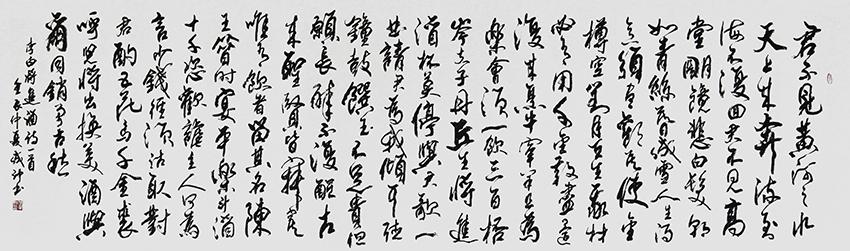 君不見黃河之水
天上來奔流到
海不復回君不見高
堂明鏡悲白髮朝
如青絲暮成雪人生得
意須盡歡莫使金
樽空對月天生我材
必有用千金散盡還
復來烹羊宰牛且為
樂會須一飲三百杯
岑夫子丹丘生將進
酒杯莫停與君歌一
曲請君為我傾耳聽
鐘鼓饌玉不足貴但
願長醉不復醒古
來聖賢皆寂寞
惟有飲者留其名陳
王昔時宴平樂斗酒
十千恣歡謔主人何為
言少錢徑須沽取對
君酌五花馬千金裘
呼兒將出換美酒與
爾同銷萬古愁
李白將進酒詩一首
壬辰仲夏